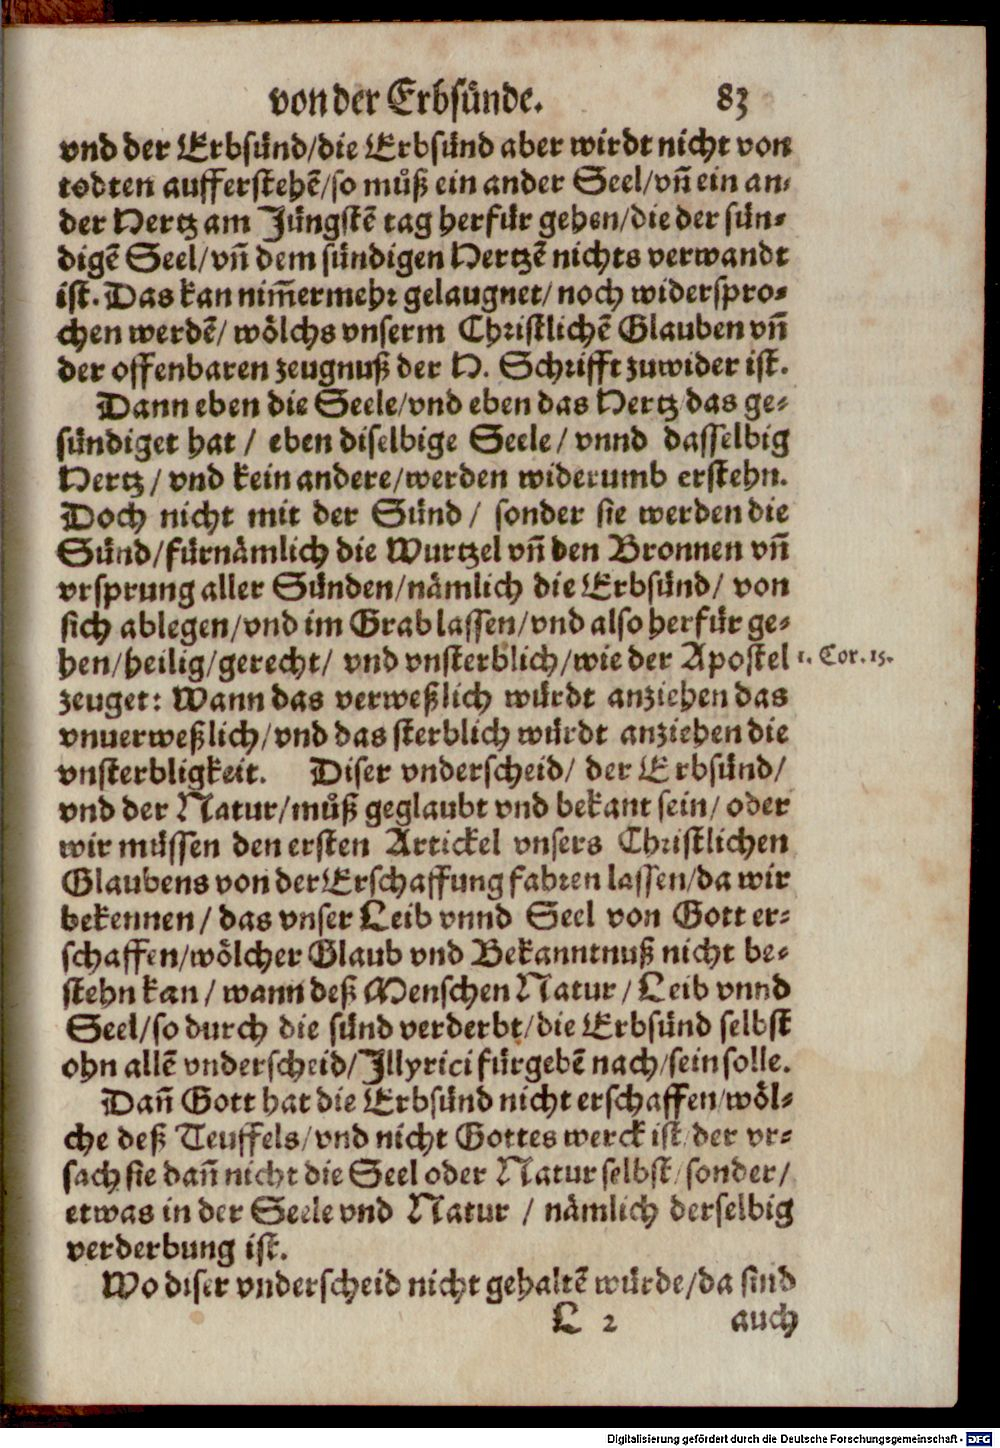 von der Erbsünde. 83
vnd der Erbsünd/die Erbsünd aber wirdt nicht von
todten aufferstehẽ/so můß ein ander Seel/vñ ein an-
der Hertz am Jüngstẽ tag herfür gehen/die der sün-
digẽ Seel/vñ dem sündigen Hertzẽ nichts verwandt
ist. Das kan nim̃ermehr gelaugnet/noch widerspro-
chen werdẽ/wölchs vnserm Christlichẽ Glauben vñ
der offenbaren zeugnuß der H. Schrifft zuwider ist.
Dann eben die Seele/vnd eben das Hertz/das ge-
sündiget hat / eben diselbige Seele / vnnd dasselbig
Hertz / vnd kein andere/werden widerumb erstehn.
Doch nicht mit der Sünd / sonder sie werden die
Sünd/fürnämlich die Wurtzel vñ den Bronnen vñ
vrsprung aller Sünden/nämlich die Erbsünd/ von
sich ablegen/vnd im Grab lassen/vnd also herfür ge-
hen/heilig/gerecht/ vnd vnsterblich/wie der Apostel 1. Cor. 15.
zeuget: Wann das verweßlich würdt anziehen das
vnuerweßlich/vnd das sterblich würdt anziehen die
vnsterbligkeit. Diser vnderscheid/ der Erbsünd/
vnd der Natur/můß geglaubt vnd bekant sein/ oder
wir müssen den ersten Artickel vnsers Christlichen
Glaubens von der Erschaffung fahren lassen/da wir
bekennen / das vnser Leib vnnd Seel von Gott er-
schaffen/wölcher Glaub vnd Bekanntnuß nicht be-
stehn kan / wann deß Menschen Natur / Leib vnnd
Seel/so durch die sünd verderbt/die Erbsünd selbst
ohn allẽ vnderscheid/Jllyrici fürgebẽ nach/sein solle.
Dañ Gott hat die Erbsünd nicht erschaffen/wöl-
che deß Teuffels/vnd nicht Gottes werck ist/der vr-
sach sie dañ nicht die Seel oder Natur selbst/sonder/
etwas in der Seele vnd Natur / nämlich derselbig
verderbung ist.
Wo diser vnderscheid nicht gehaltẽ würde/da sind
L 2 auch
Digitalisierung gefördert durch die Deutsche Forschungsgemeinschaft - DFG